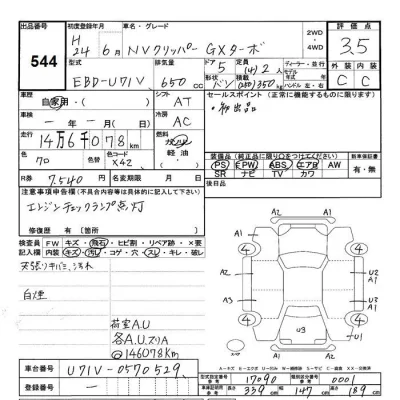 出品番号 初度登録年月 車名・グレード 2WD ・4WD 評価点
544 H24年6月 NVクリッパー GXターボ 3.5
型式 排気量 ドア 5 定員 (4) 2人 ディーラー・並行
EBD-U71V 650cc 形状 バン 積載 (200)350kg ハンドル 左・右 外装 内装 C C
車歴 自家用・ シフト AT セールスポイント（正常に機能するものに限ります）
車検 ー年ー月 冷房 AC ・初出品
走行 14万6千078 燃料 ガソリン 軽油
色 70 色コード X42
装備品（純正品に限り○をつけてください） 新車保証書
PS EPW ABS エアB AW
SR ナビ TV カワ 有・無
R券 7,540円 名変期限 月 日 後日品
注意事項申告欄（不具合内容等は具体的に記入して下さい）
エンジンチェックランプ点灯
修復歴 有〔箇所 〕
検査員 FW キズ・飛石・ヒビ割・リペア跡・×要
記入欄 内装 キズ・汚レ・コゲ・穴・スレ・キレ・破レ
天張りキバミ、汚れ
白煙
荷室A.U
各A.U.スリA
@146078km
A1 A2
4 4
A2 A1 U2 A1
A3 A1 U1 A1
U3
4 4
スペア
A1 A2
車台番号 U71V-0570529
登録番号 ー
型式指定番号 参考 17090 類別区分番号 参考 0001
車検証記載寸法 参考 長さ 339 幅 147 高さ 189